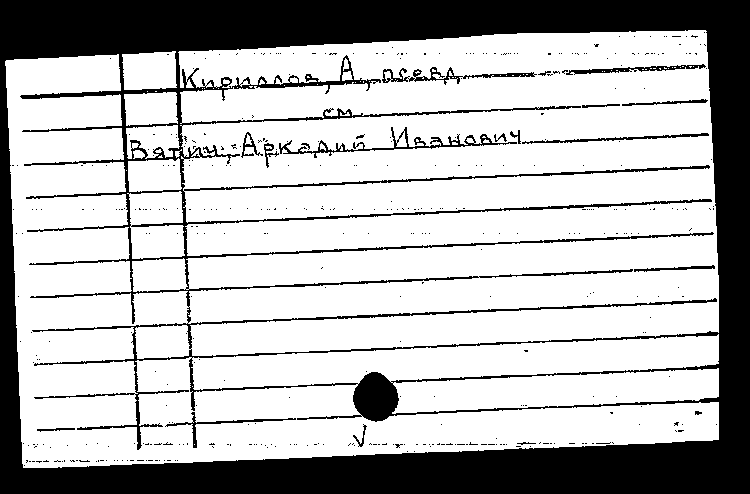 Кириллов, А, псевд
см
Вятич, Аркадий Иванович